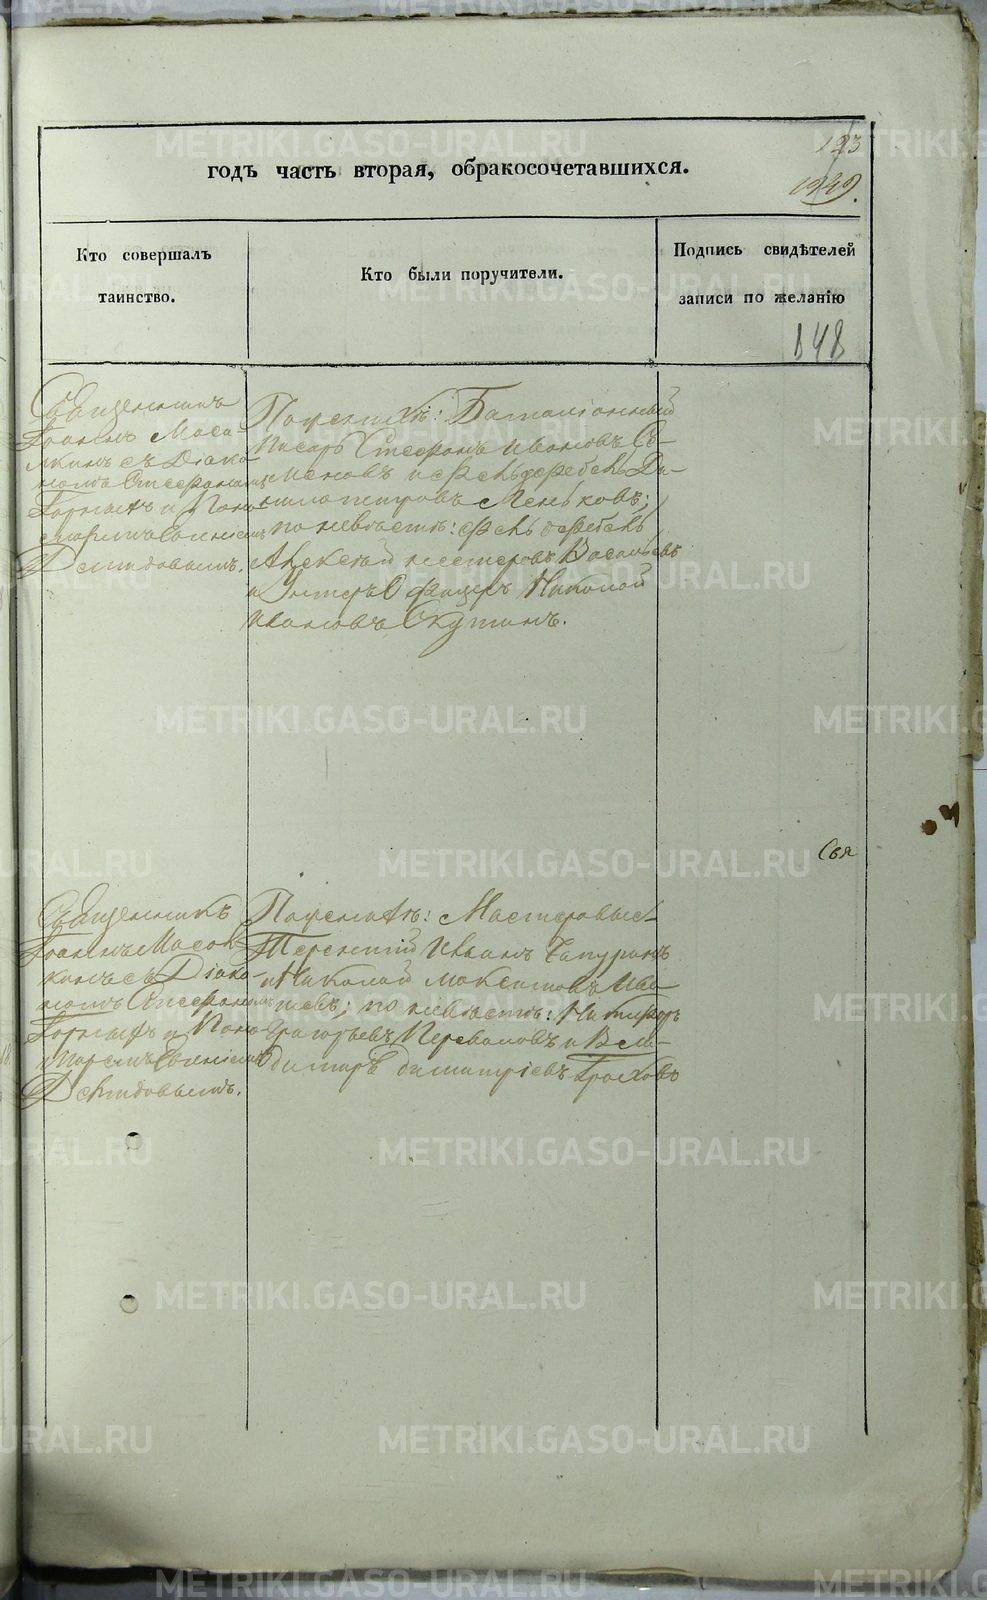 годъ часть вторая, обракосочетавшихся.
123
Кто совершалъ
таинство.
Кто были поручители.
Подпись свидѣтелей
записи по желанію
148
Священникъ
Іоаннъ Маса-
лкинъ съ Діако
номъ Стефаномъ
и Поно
маремъ Евгеніемъ
Демидовымъ.
По женихѣ: Баталіонный
Писарь Стефанъ Ивановъ Се-
меновъ и Фельдфебель Да-
нило Петровъ Меньковъ;
по невѣстѣ: Фельдфебель
Алексѣй Нестеровъ Васильевъ
и Унтеръ Офицеръ Николай
Ивановъ Скутинъ.
Свя
Священникъ
Іоаннъ Масал-
кинъ съ Діако-
номъ Стефаномъ
и Поно-
маремъ Евгеніемъ
Демидовымъ.
По женихѣ: Мастеровые
Терентій Иванъ Чапуринъ
и Николай Максимовъ Ива
шевъ; по невѣстѣ: Никифоръ
Григорьевъ Переваловъ и Вла-
димиръ Димитріевъ Гроховъ
METRIKI.GASO-URAL.RU